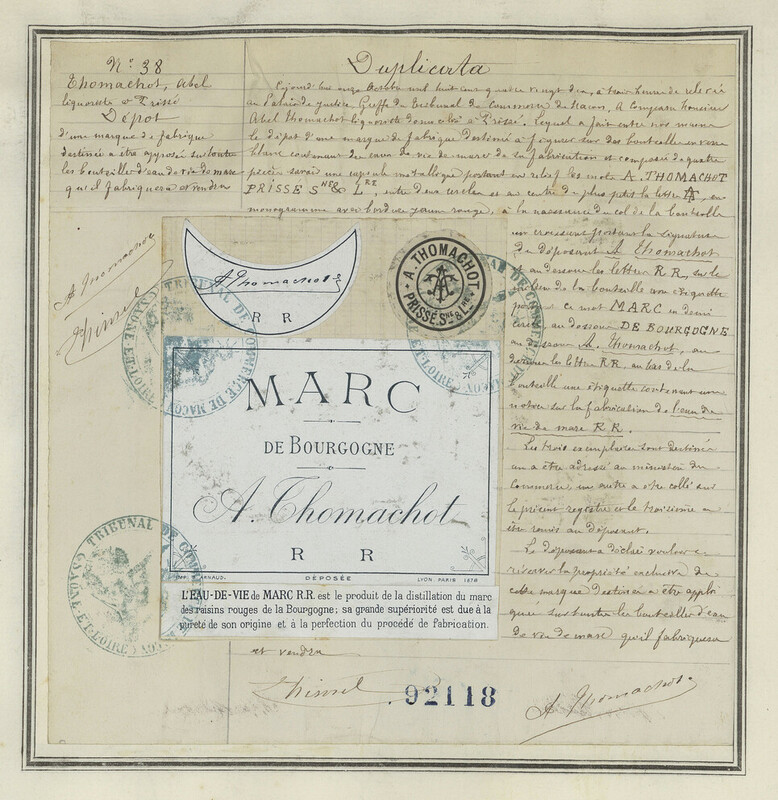 Nº 38
Thomachot, Abel
liquoriste à Prissé
Dépot
d'une marque de fabrique
destinée a être apposée sur toutes
les bouteilles d'eau de vie de marc
qu'il fabriquera et vendra
Duplicata
Cejourd'hui onze octobre mil huit cent quatre vingt dix, à trois heures de relevée
au Palais de Justice, Greffe du tribunal de Commerce de Macon, A comparu Monsieur
Abel Thomachot liquoriste demeurant à Prissé. Lequel a fait entre nos mains
le dépot d'une marque de fabrique destinée à figurer sur des bouteilles en verre
blanc contenant des eaux de vie de marc de sa fabrication et composée de quatre
pièces savoir une capsule métallique portant en relief les mots A. THOMACHOT
PRISSÉ Sne & Lre, entre deux cercles et au centre du plus petit la lettre A T, en
monogramme avec bordure jaune rouge, à la naissance du col de la bouteille
un croissant portant la signature
du déposant A. Thomachot
et au dessous les lettres R R, sur le
milieu de la bouteille une étiquette
portant ce mot MARC en demi
cercle au dessous DE BOURGOGNE
au dessous A. Thomachot, au
dessous les lettres RR. au bas de la
bouteille une étiquette contenant une
notice sur la fabrication de l'eau de
vie de marc R R.
Les trois exemplaires sont destinés
un a être adressé au ministère du
Commerce, un autre a être collé sur
le présent registre et le troisième a
être remis au déposant.
Le déposant a déclaré vouloir se
réserver la propriété exclusive de
cette marque destinée a être appli
quée sur toutes les bouteilles d'eau
de vie de marc qu'il fabriquera
et vendra
A. Thomachot
A. Thomachot
R R
A. THOMACHOT
PRISSÉ, Sne & Lre
TRIBUNAL DE COMMERCE DE MACON
SAONE-ET-LOIRE
MARC
DE BOURGOGNE
A. Thomachot
R R
ARNAUD.
DÉPOSÉE
LYON PARIS 1876
L'EAU-DE-VIE de MARC R.R. est le produit de la distillation du marc
des raisins rouges de la Bourgogne; sa grande supériorité est due à la
pureté de son origine et à la perfection du procédé de fabrication.
TRIBUNAL DE COMM
SAONE-ET-LOIRE
92118
A Thomachot